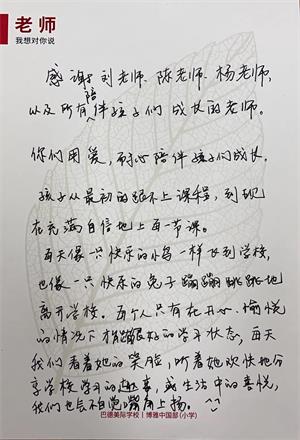 老师
我想对你说
感谢刘老师、陈老师、杨老师,
以及所有陪伴孩子们成长的老师。
你们用爱,耐心陪伴孩子们成长。
孩子从最初的跟不上课程,到现
在充满自信地上每一节课。
每天像一只快乐的小鸟一样飞到学校,
也像一只快乐的兔子蹦蹦跳跳地
离开学校。每个人只有在开心、愉悦
的情况下才能有很好的学习状态,每天
我们看着她的笑脸,听着她欢快地分
享学校学习的趣事,或生活中的喜悦,
我们也会不自觉嘴角上扬。
巴德美际学校 | 博雅中国部(小学)